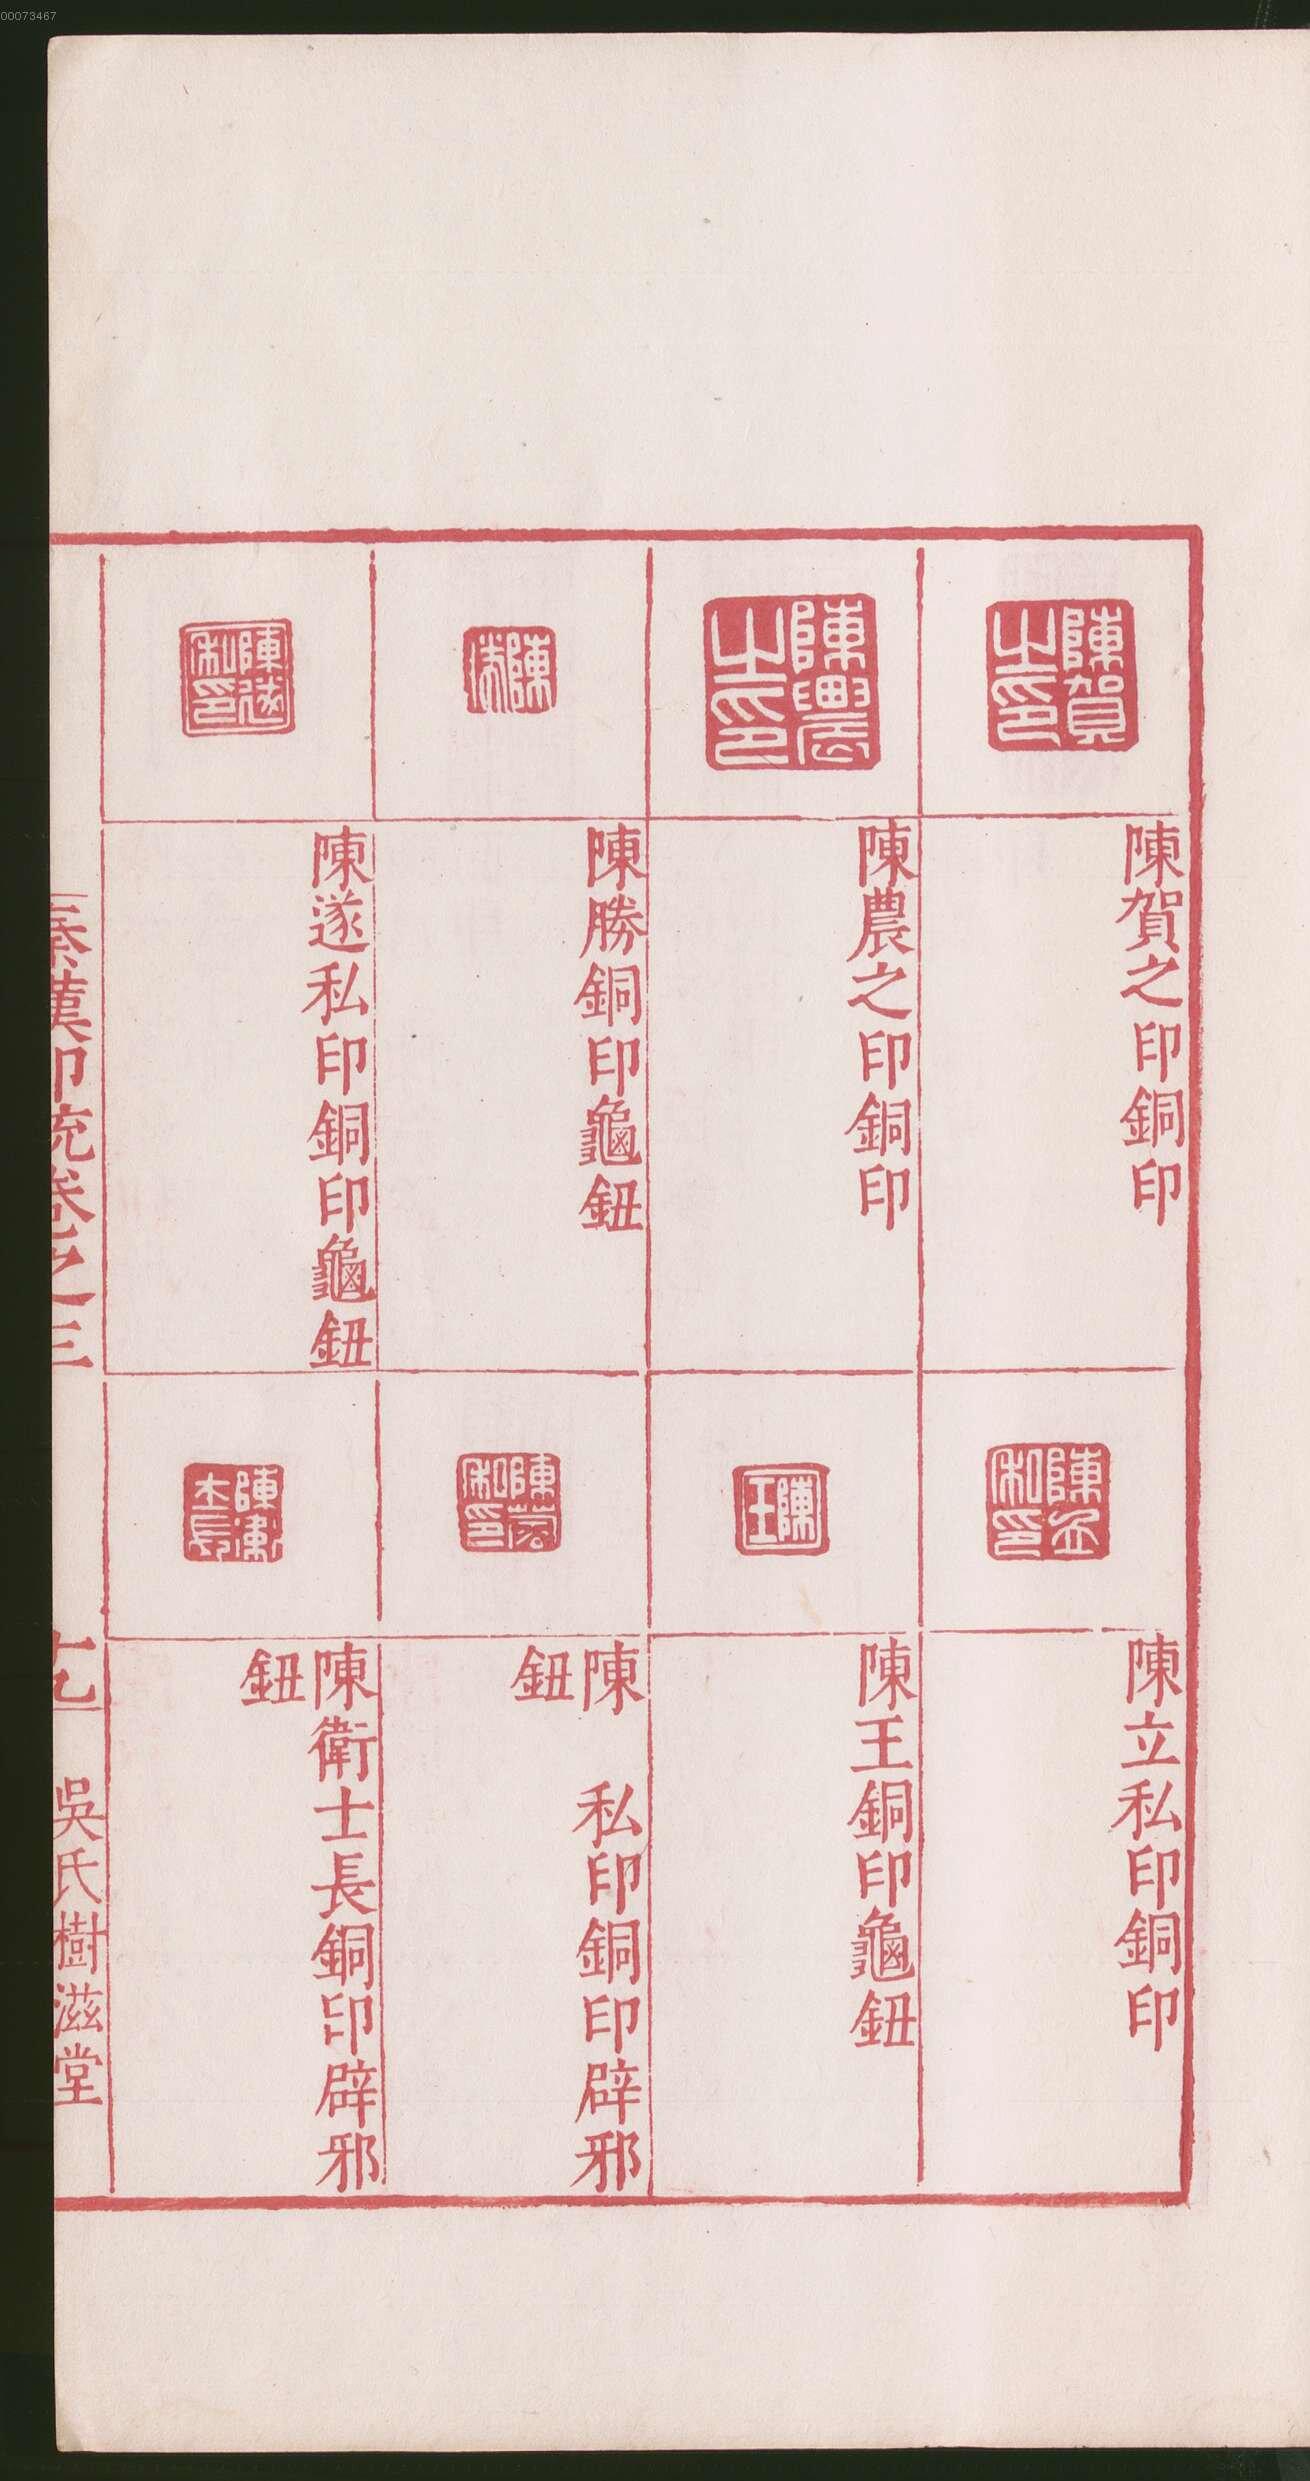 00073467
陳賀之印
陳賀之印銅印
陳農之印
陳農之印銅印
陳勝
陳勝銅印龜鈕
陳遂私印
陳遂私印銅印龜鈕
陳立私印
陳立私印銅印
陳王
陳王銅印龜鈕
陳 私印
陳 私印銅印辟邪
鈕
陳衛士長
陳衛士長銅印辟邪
鈕
秦漢印統卷之三
吳氏樹滋堂